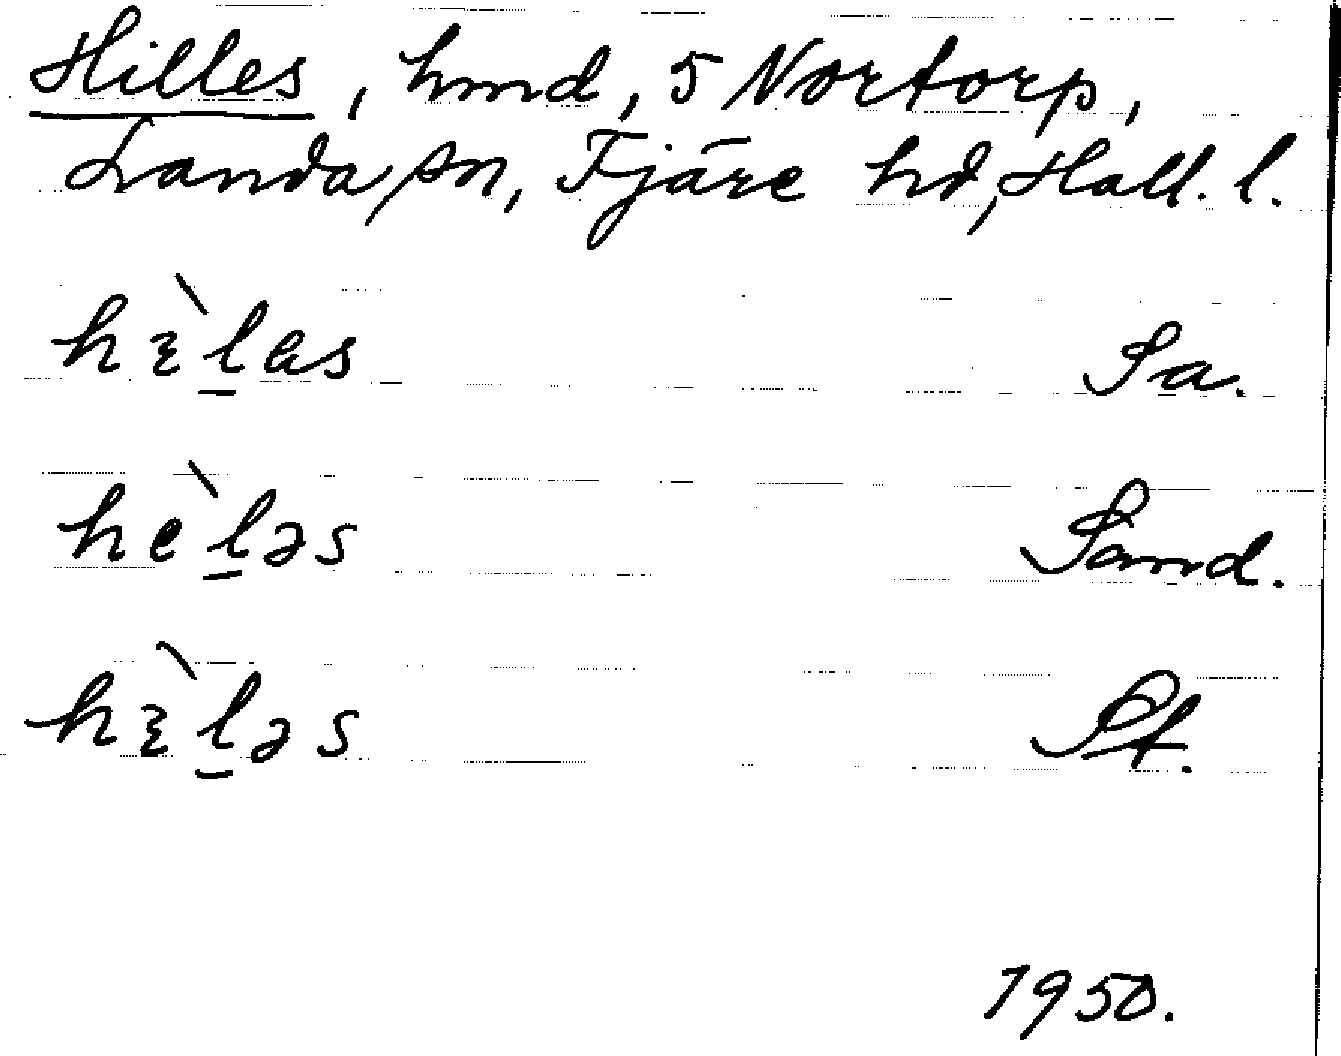 Hilles, hmd, 5 Nortorp,
Landa sn, Fjäre hd, Hall. l.
hɛ̀l̲as Sa.
hèl̲əs Sand.
hɛ̀l̲əs St.
1950.